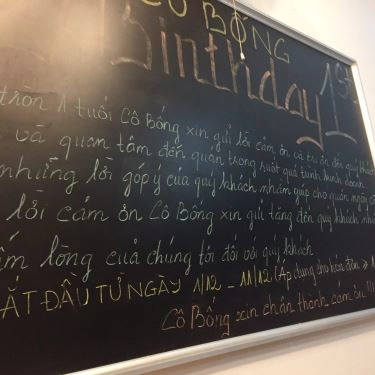 CÔ BỐNG
Birthday 1st
tròn 1 tuổi Cô Bống xin gửi lời cảm ơn và tri ân đến quý khách
và quan tâm đến quán trong suốt quá trình kinh doanh
những lời góp ý của quý khách nhằm giúp cho quán ngày
lời cảm ơn Cô Bống xin gửi tặng đến quý khách
tấm lòng của chúng tôi đối với quý khách
BẮT ĐẦU TỪ NGÀY 1/12 - 11/12 (Áp dụng cho hóa đơn ≥ 1
Cô Bống xin chân thành cảm ơn !!!